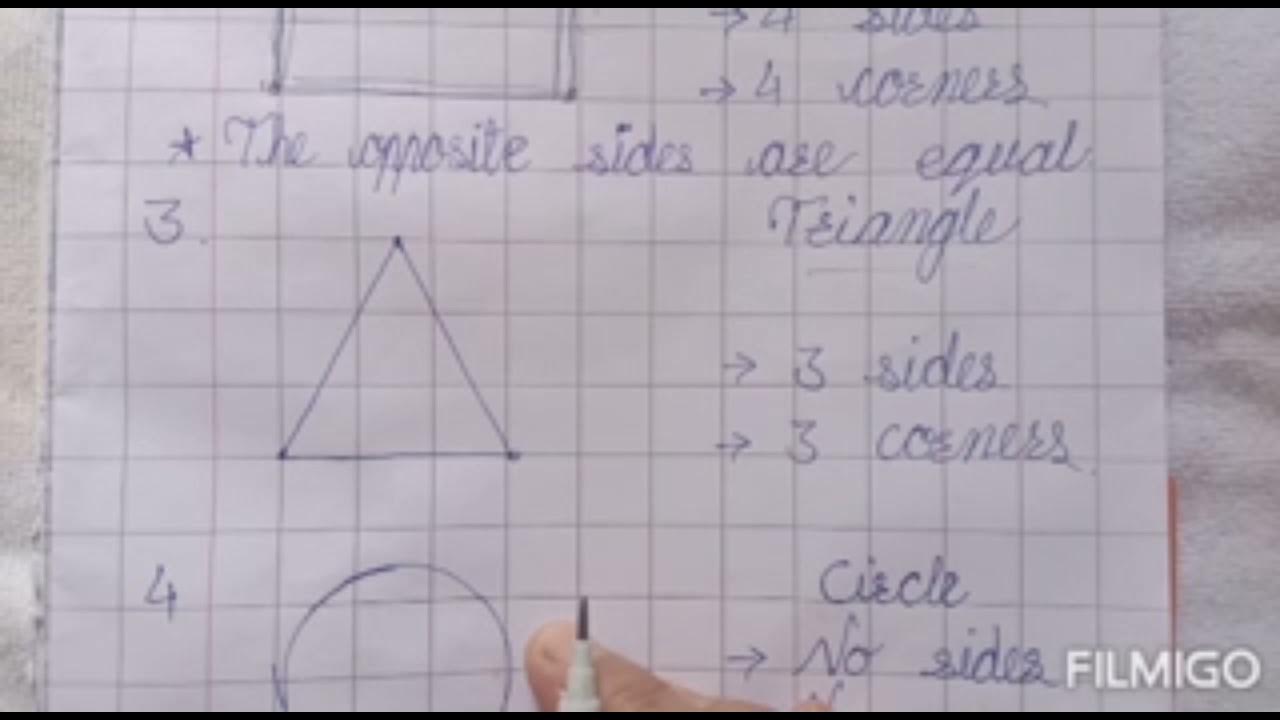 → 4 sides
→ 4 corners
* The opposite sides are equal
3. Triangle
→ 3 sides
→ 3 corners
4 Circle
→ No sides
FILMIGO